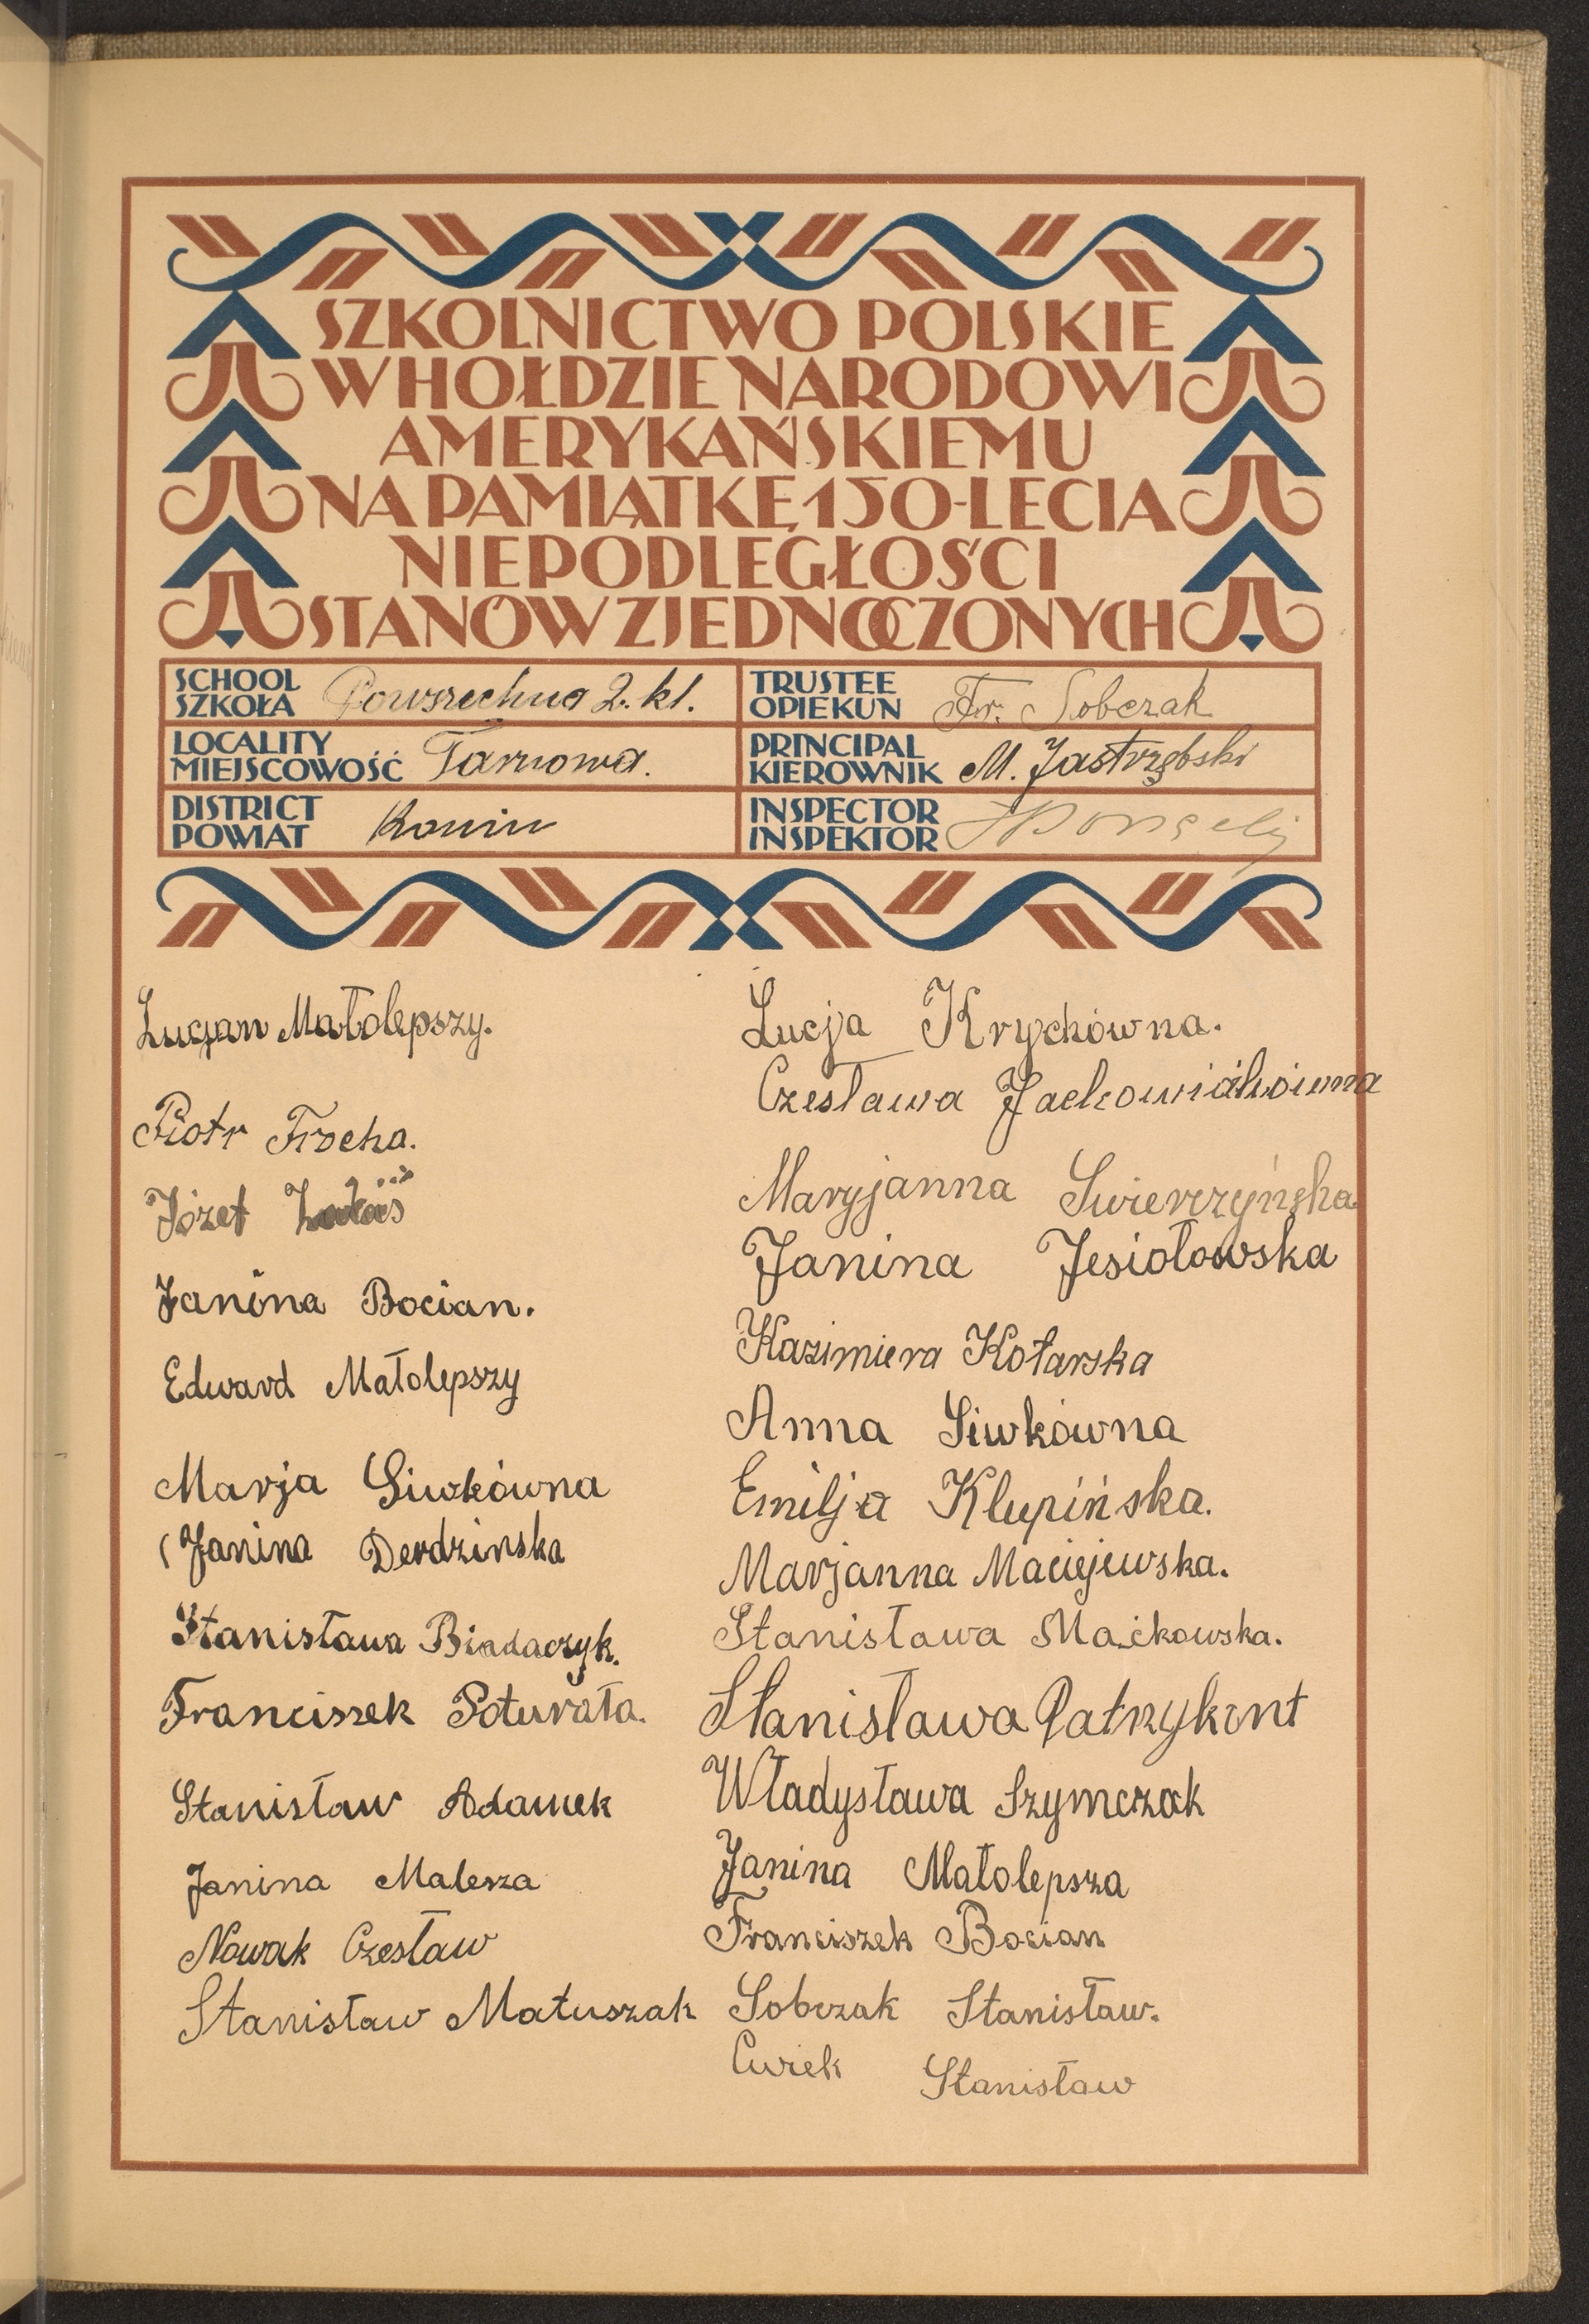 SZKOLNICTWO POLSKIE
W HOŁDZIE NARODOWI
AMERYKAŃSKIEMU
NA PAMIĄTKĘ 150-LECIA
NIEPODLEGŁOŚCI
STANÓW ZJEDNOCZONYCH
SCHOOL
SZKOŁA Powszechna 2. kl.
TRUSTEE
OPIEKUN Fr. Sobczak
LOCALITY
MIEJSCOWOŚĆ Tarnowa.
PRINCIPAL
KIEROWNIK M. Jastrzębski
DISTRICT
POWIAT Konin
INSPECTOR
INSPEKTOR
Lucjan Małolepszy.
Piotr Trocha.
Józef
Janina Bocian.
Edward Małolepszy
Marja Siwkówna
Janina Derdzinska
Stanisława Biadaczyk.
Franciszek Poturała.
Stanisław Adamek
Janina Malesza
Nowak Czesław
Stanisław Matuszak
Lucja Krychówna.
Czesława
Maryjanna Swierczyńska
Janina Jesiołowska
Kazimiera Kotarska
Anna Siwkówna
Emilja Klupińska.
Marjanna Maciejewska.
Stanisława Maćkowska.
Stanisława Patrykint
Władysława Szymczak
Janina Małolepsza
Franciszek Bocian
Sobczak Stanisław.
Cwiek Stanisław